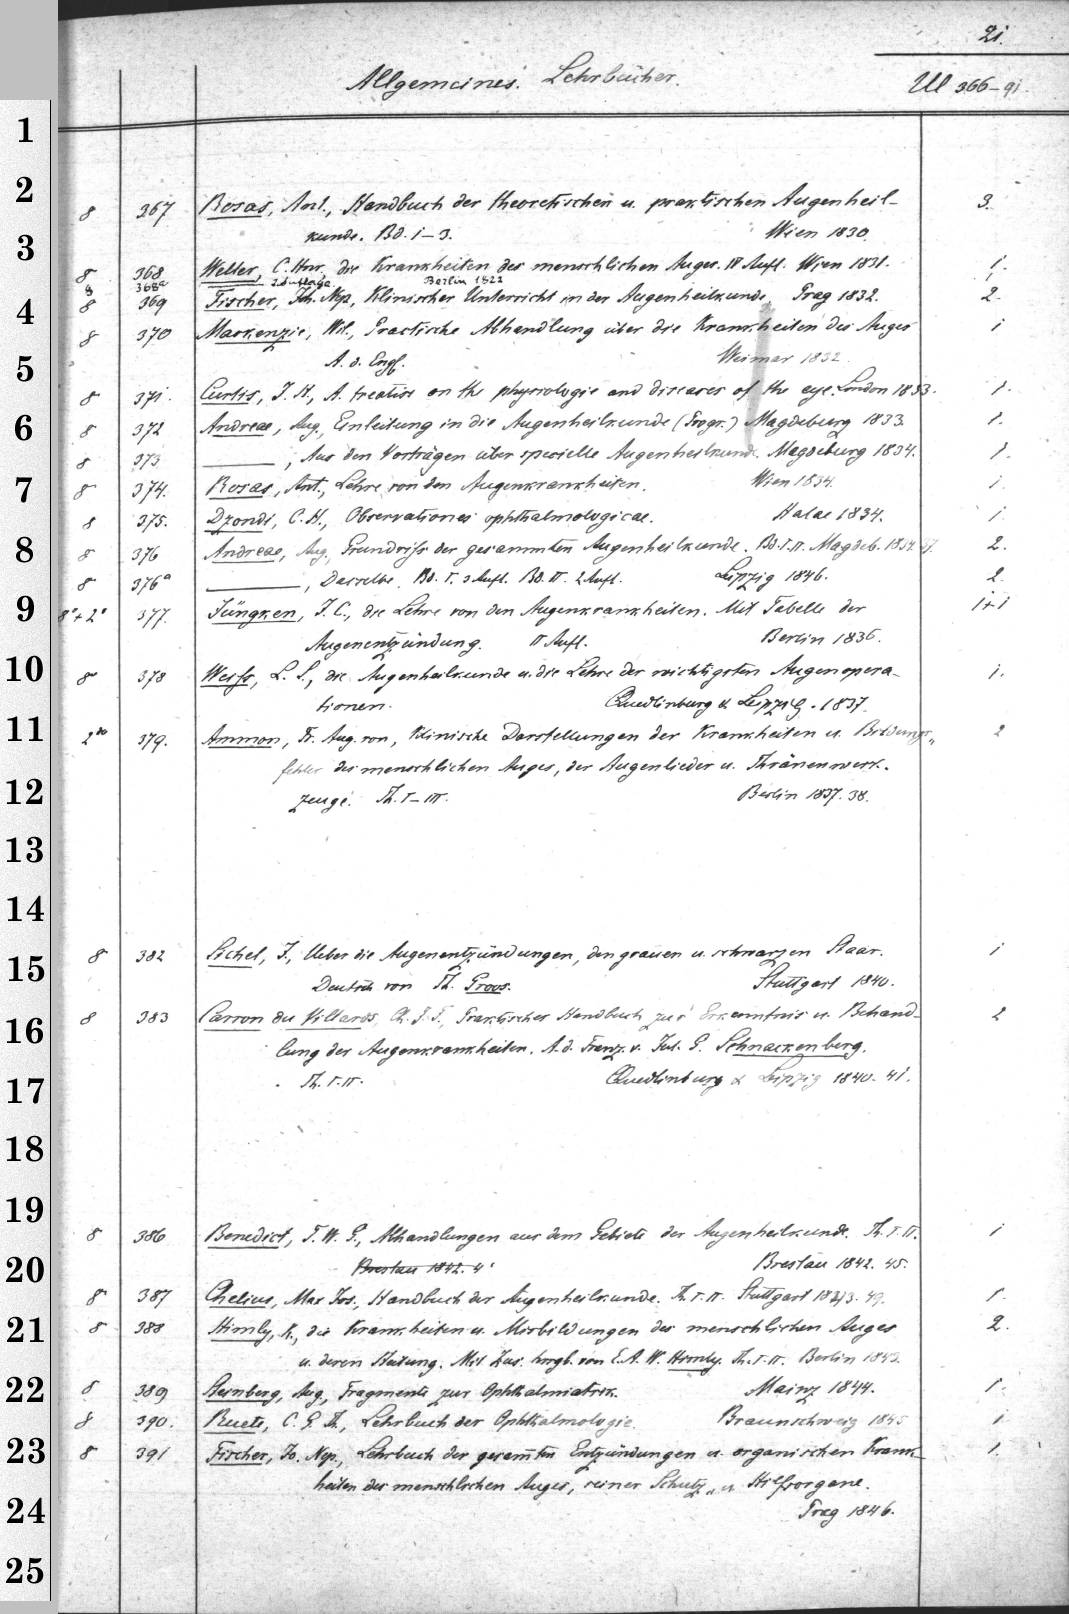 21.
Allgemeines. Lehrbücher.
Ul 366-91.
1
2
8 367 Rosas, Ant., Handbuch der theoretischen u. praktischen Augenheil- 3.
kunde. Bd. 1-3. Wien 1830.
3
8 368 Weller, C. Hnr., die Krankheiten des menschlichen Auges. IV Aufl. Wien 1831. 1.
8 368a 2. Auflage. Berlin 1822 1
8 369 Fischer, Joh. Nep., Klinischer Unterricht in der Augenheilkunde. Prag 1832. 2.
4
8 370 Mackenzie, Wil., Practische Abhandlung über die Krankheiten des Auges 1
A. d. Engl. Weimar 1832.
5
8 371. Curtis, J. H., A. treatise on the physiologie and diseases of the eye. London 1833. 1.
6
8 372 Andreae, Aug., Einleitung in die Augenheilkunde (Progr.) Magdeburg 1833. 1.
8 373 ———, Aus den Vorträgen über specielle Augenheilkunde. Magdeburg 1834. 1.
7
8 374. Rosas, Ant., Lehre von den Augenkrankheiten. Wien 1834. 1.
8 375. Dzondi, C. H., Observationes ophthalmologicae. Halae 1834. 1.
8
8 376 Andreae, Aug., Grundriss der gesammten Augenheilkunde. Bd. I. II. Magdeb. 1834. 37. 2.
8 376a ———, Dasselbe. Bd. I. 3 Aufl. Bd. II. 2 Aufl. Leipzig 1846. 2.
9
8°+2° 377. Jüngken, J. C., die Lehre von den Augenkrankheiten. Mit Tabelle der 1+1
Augenentzündung. II Aufl. Berlin 1836.
10
8 378 Weiss, L. S., die Augenheilkunde u. die Lehre der wichtigsten Augenopera- 1.
tionen. Quedlinburg & Leipzig. 1837.
11
379. Ammon, Fr. Aug. von, Klinische Darstellungen der Krankheiten u. Bildungs- 2
fehler des menschlichen Auges, der Augenlieder u. Thränenwerk-
12
zeuge. Th. I-III. Berlin 1837. 38.
13
14
15
8 382 Sichel, J., Ueber die Augenentzündungen, den grauen u. schwarzen Staar. 1
Deutsch von Th. Groos. Stuttgart 1840.
16
8 383 Carron du Villards, Ch. J. F., Praktisches Handbuch zur Erkenntnis u. Behand- 2
lung der Augenkrankheiten. A. d. Franz. v. Jul. G. Schnackenberg.
17
Th. I. II. Quedlinburg & Leipzig 1840. 41.
18
19
8 386 Benedict, T. W. G., Abhandlungen aus dem Gebiete der Augenheilkunde. Th. I. II. 1
20
Breslau 1842. 4 Breslau 1842. 45.
8 387 Chelius, Max Jos., Handbuch der Augenheilkunde. Th. I. II. Stuttgart 1843. 49. 1.
21
8 388 Himly, K., die Krankheiten u. Misbildungen des menschlichen Auges 2.
u. deren Heilung. Mit Zus. hrsgb. von E. A. W. Himly. Th. I. II. Berlin 1843.
22
8 389 Sternberg, Aug., Fragmente zur Ophthalmiatrik. Mainz 1844. 1.
8 390. Ruete, C. G. Th., Lehrbuch der Ophthalmologie Braunschweig 1845 1.
23
8 391 Fischer, Jo. Nep., Lehrbuch der gesam̅ten Entzündungen u. organischen Krank- 1.
heiten des menschlichen Auges, seiner Schutz- u. Hilfsorgane.
24
Prag 1846.
25